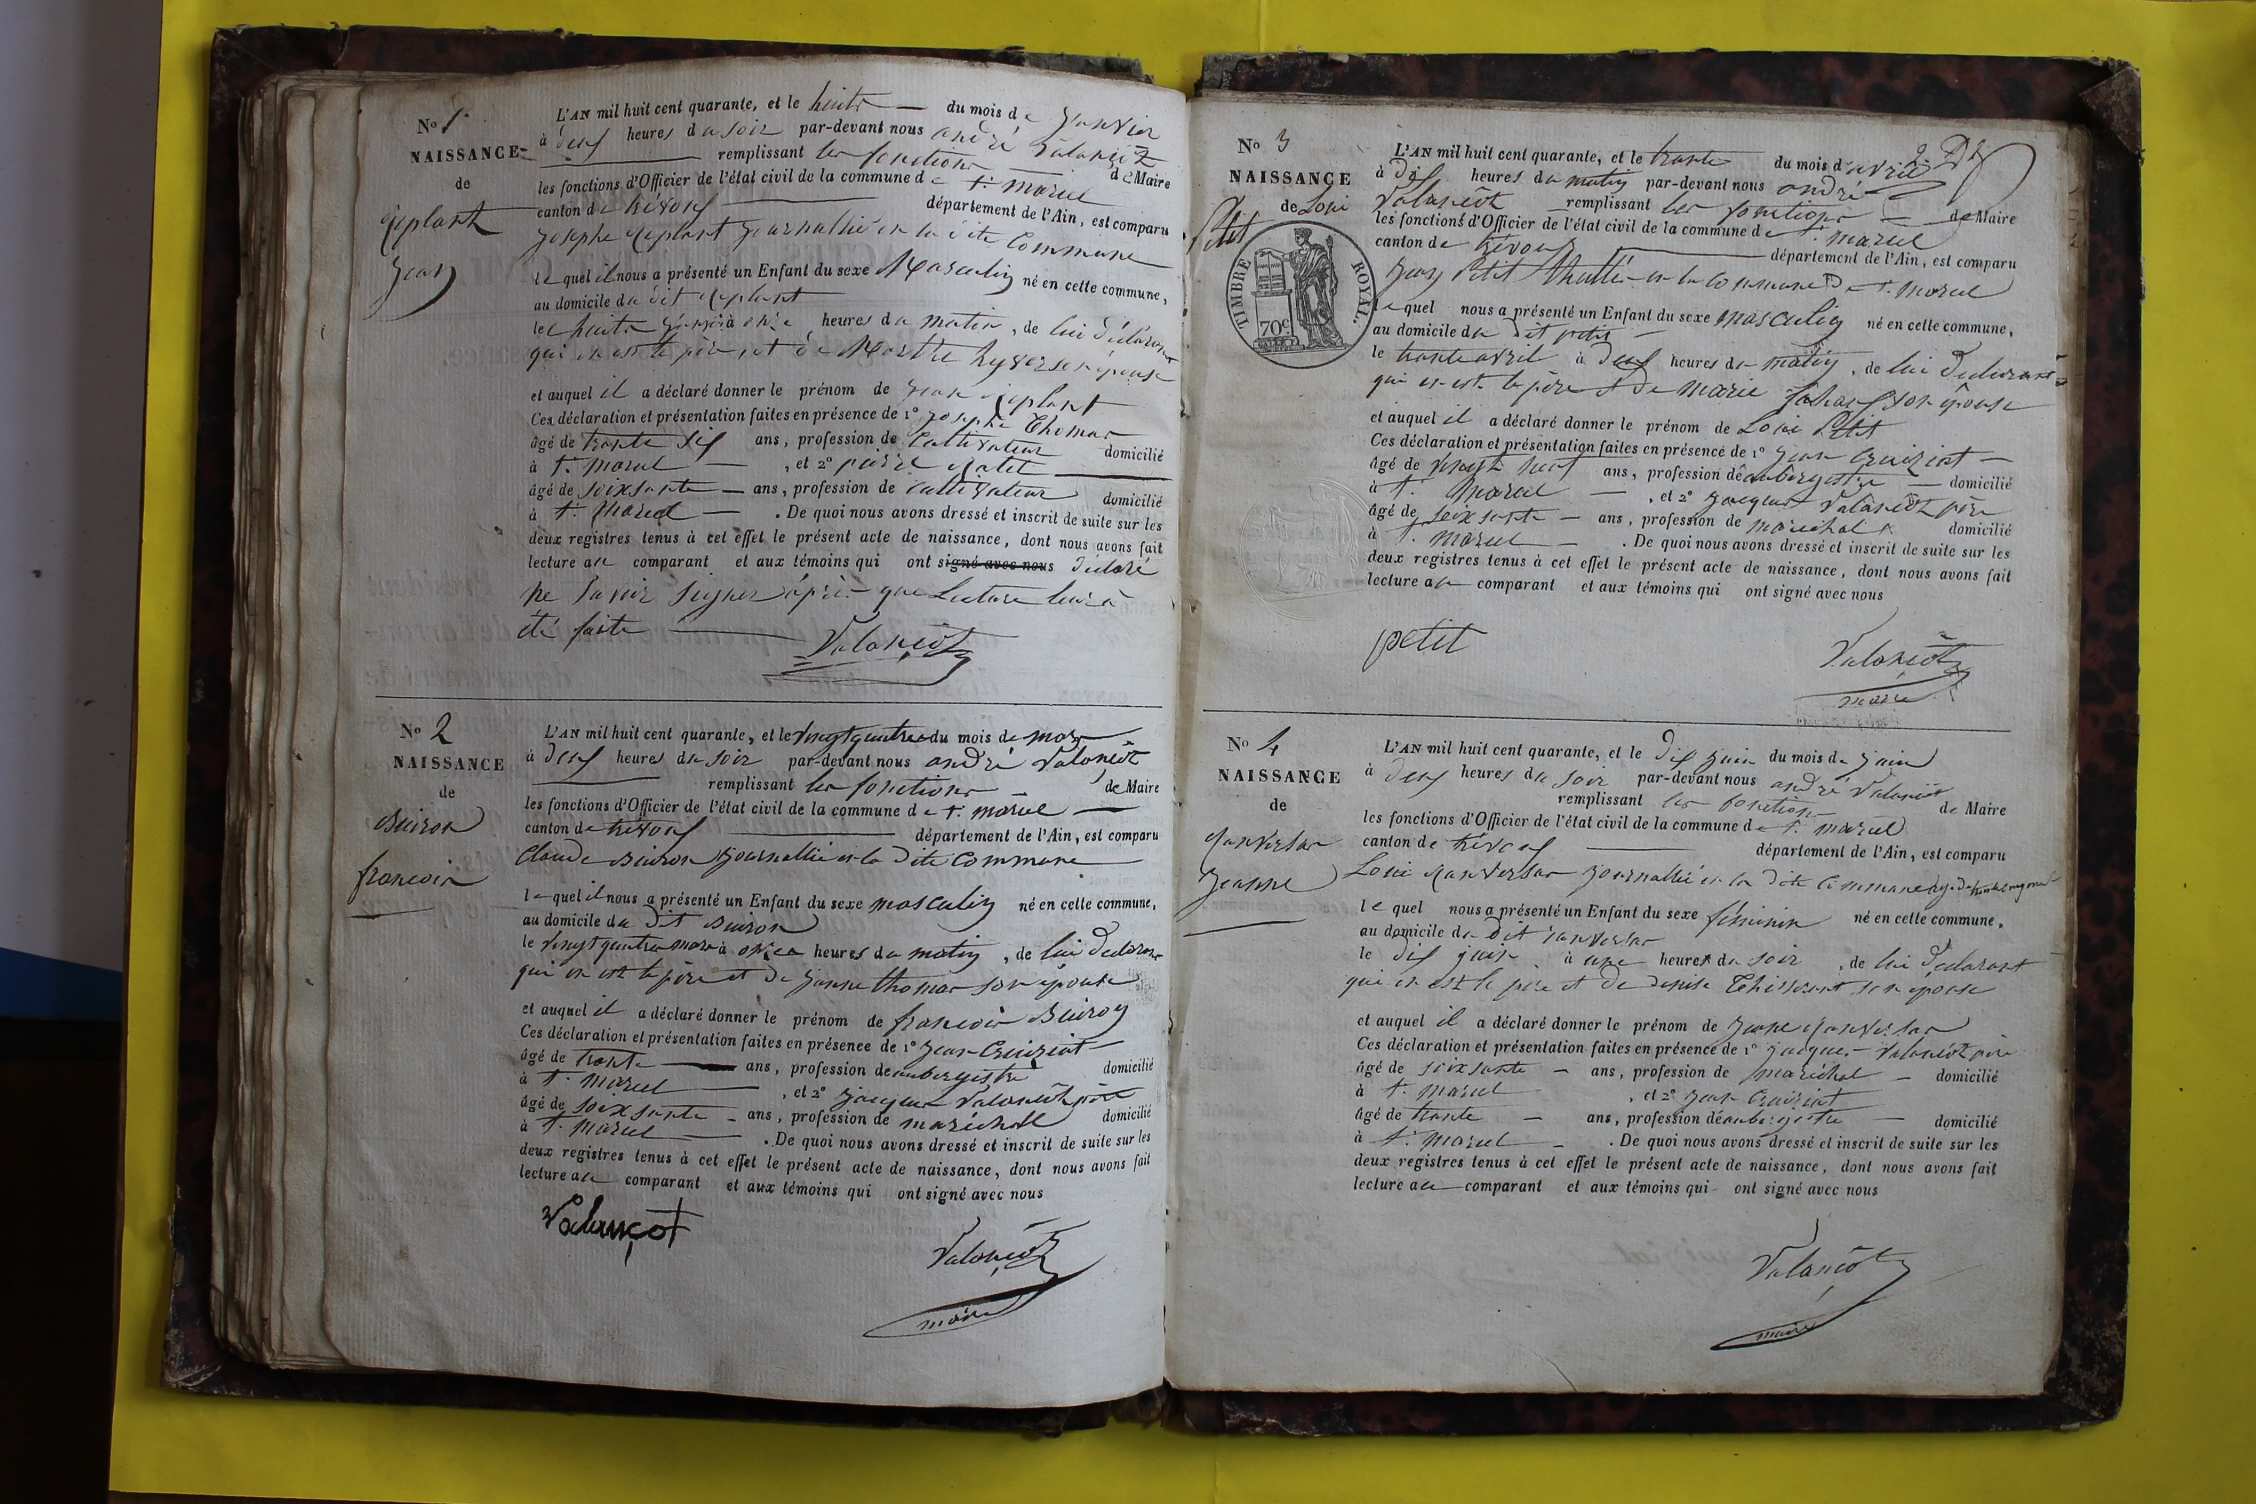 N° 1
NAISSANCE
de
Jean
L'AN mil huit cent quarante, et le huite du mois de janvier
à deux heures du soir par-devant nous andré Valançot
remplissant les fonctions de Maire
les fonctions d'Officier de l'état civil de la commune de St marcel
canton de trévoux département de l'Ain, est comparu
joseph journallié en la dite Commune
le quel il nous a présenté un Enfant du sexe Masculin né en cette commune,
au domicile du dit
le huite janvier à onze heures du matin, de lui déclarant
qui en est le père et de Marthe son épouse
et auquel il a déclaré donner le prénom de jean
Ces déclaration et présentation faites en présence de 1° joseph Thomas
âgé de trante six ans, profession de Cultivateur domicilié
à St marcel, et 2° pierre
âgé de soixsante ans, profession de cultivateur domicilié
à St Marcel. De quoi nous avons dressé et inscrit de suite sur les
deux registres tenus à cet effet le présent acte de naissance, dont nous avons fait
lecture au comparant et aux témoins qui ont signé avec nous déclaré
ne savoir signer après que Lecture leur a
été faite
Valançot
N° 2
NAISSANCE
de
Buiron
francois
L'AN mil huit cent quarante, et le vingt quatre du mois de mars
à deux heures du soir par-devant nous andré Valançot
remplissant les fonctions de Maire
les fonctions d'Officier de l'état civil de la commune de St marcel
canton de trévoux département de l'Ain, est comparu
Claude Buiron journallié en la dite Commune
le quel il nous a présenté un Enfant du sexe masculin né en cette commune,
au domicile du dit Buiron
le vingt quatre mars à onze heures du matin, de lui declarant
qui en est le père et de janne thomas son épouse
et auquel il a déclaré donner le prénom de francois Buiron
Ces déclaration et présentation faites en présence de 1° jean Cruiziat
âgé de trante ans, profession de aubergiste domicilié
à St marcel, et 2° jacques Valançot père
âgé de soixsante ans, profession de maréchal domicilié
à St marcel. De quoi nous avons dressé et inscrit de suite sur les
deux registres tenus à cet effet le présent acte de naissance, dont nous avons fait
lecture au comparant et aux témoins qui ont signé avec nous
Valançot
Valançot
maire
N° 3
NAISSANCE
de Loui
Petit
TIMBRE ROYAL.
70c
L'AN mil huit cent quarante, et le trante du mois d'avril
à dix heures du matin par-devant nous andré
Valançot remplissant les fonctions de Maire
les fonctions d'Officier de l'état civil de la commune de St marcel
canton de trévoux département de l'Ain, est comparu
jean Petit en la commune de St marcel
le quel nous a présenté un Enfant du sexe masculin né en cette commune,
au domicile du dit petit
le trante avril à deux heures du matin, de lui declarant
qui en est le père et de marie son épouse
et auquel il a déclaré donner le prénom de Loui Petit
Ces déclaration et présentation faites en présence de 1° jean Cruiziat
âgé de vingt neuf ans, profession de aubergiste domicilié
à St Marcel, et 2° jacques Valançot père
âgé de soixsante ans, profession de maréchal domicilié
à St marcel. De quoi nous avons dressé et inscrit de suite sur les
deux registres tenus à cet effet le présent acte de naissance, dont nous avons fait
lecture au comparant et aux témoins qui ont signé avec nous
petit
Valançot
maire
N° 4
NAISSANCE
de
Jeanne
L'AN mil huit cent quarante, et le dix juin du mois de juin
à deux heures du soir par-devant nous andré Valançot
remplissant les fonction de Maire
les fonctions d'Officier de l'état civil de la commune de St marcel
canton de trévoux département de l'Ain, est comparu
Loui journallié en la dite Commune
le quel nous a présenté un Enfant du sexe féminin né en cette commune,
au domicile du dit
le dix juin à une heures du soir, de lui déclarant
qui en est le père et de denise son épouse
et auquel il a déclaré donner le prénom de
Ces déclaration et présentation faites en présence de 1° jacques Valançot père
âgé de soixsante ans, profession de maréchal domicilié
à St marcel, et 2° jean Cruiziat
âgé de trante ans, profession de aubergiste domicilié
à St marcel. De quoi nous avons dressé et inscrit de suite sur les
deux registres tenus à cet effet le présent acte de naissance, dont nous avons fait
lecture au comparant et aux témoins qui ont signé avec nous
Valançot
maire